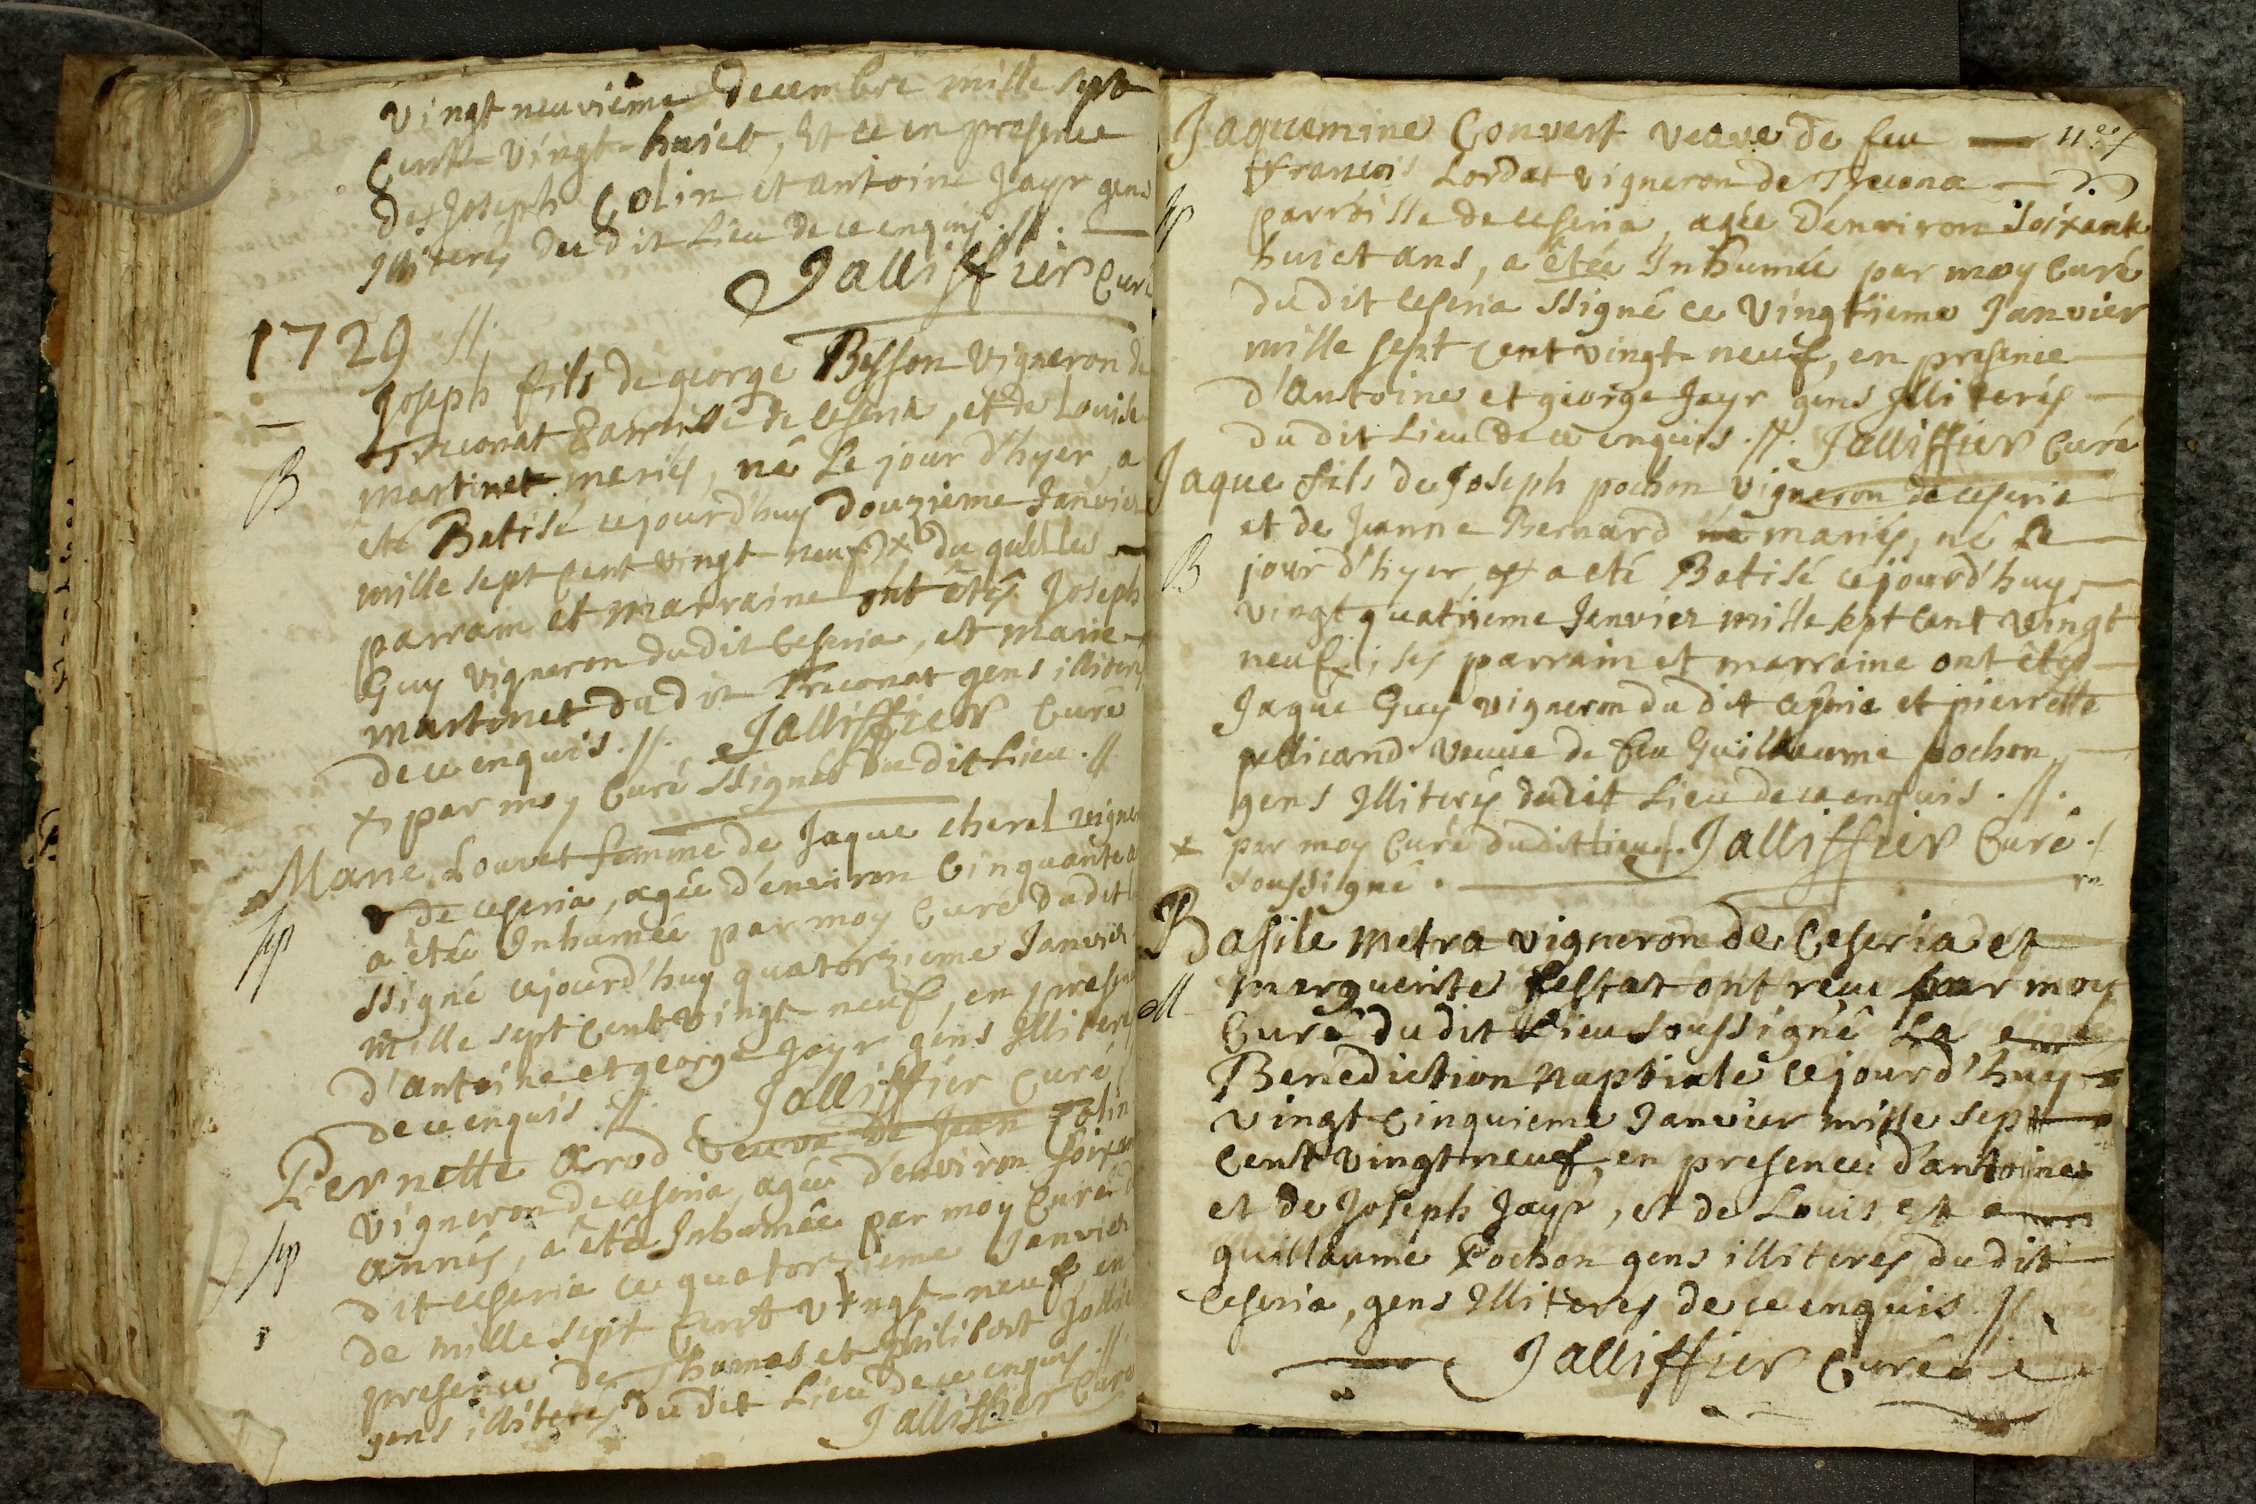 vingt neuvième Decembre mille sept
cent vingt-huict, et ce en presence
de Joseph Colin et antoine Jayr gens
Illiterés du dit Lieu de ce enquis .//.
Jalliffier Curé
1729 //.
Joseph fils de george Besson vigneron de
Treconat Parroisse de Ceseria, et de Louise
B
martinet mariés, né Le jour d'hyer, a
eté Batisé cejourd'huy douzieme Janvier
mille sept cent vingt-neuf x du quel les
parrain et marraine ont êtés Joseph
Guy vigneron dudit Ceseria, et marie
martinet dudit Treconat gens illiterés
de ce enquis .//. Jalliffier Curé
x par moy Curé ssigné du dit Lieu .//
Marie Louvet femme de Jaque cheral vigne
Sp
de Ceseria, agée d'environ Cinquante a
a êtée Inhumée par moy Curé dudit
ssigné cejourd'huy quatorzieme Janvier
mille sept cent vingt-neuf, en presence
d'antoine et george Jayr gens Illiterés
de ce enquis .//. Jalliffier Curé
Pernette Arod veuve de Jean Colin
vigneron de Ceseria, agée d'environ soixan
Sp
annés, a êtée Inhumée par moy Curé d
dit Ceseria ce quatorzieme Janvier
de mille sept cent vingt-neuf, en
presence de Thomas et philibert
gens illiterés du dit Lieu de ce enquis .//.
Jalliffier Curé
Jaquemine Convert veuve de feu
ffrançois Lordat vigneron de Trecona
Sp
parroisse de Ceseria, agée d'environ soixante
huict ans, a êtée Inhumée par moy Curé
du dit Ceseria ssigné ce vingtieme Janvier
mille sept cent vingt-neuf, en presence
d'Antoine et george Jayr gens Illiterés
du dit Lieu de ce enquis .//. Jalliffier Curé
Jaque fils de Joseph pochon vigneron de Ceseria
et de Jeanne Bernard mariés, né Le
B
jour d'hyer, a eté Batisé cejourd'huy
vingt quatrieme Janvier mille sept cent vingt
neuf x; ses parrain et marraine ont êtés
Jaque Guy vigneron du dit Ceseria et pierrette
pellicand veuve de feu Guillaume pochon
gens Illiterés dudit Lieu de ce enquis .//.
x par moy Curé dudit Lieu Jalliffier Curé
soussigné.
Basile Metra vigneron de Ceseria et
M
marguerite festat ont reçu par moy
Curé du dit Lieu soussigné La
Benediction Nuptiale cejourd'huy
vingt Cinquieme Janvier mille sept
cent vingt neuf, en presence d'antoine
et de Joseph Jayr, et de Louis et
guillaume Pochon gens illiterés du dit
Ceseria, gens Illiterés de ce enquis .//
Jalliffier Curé